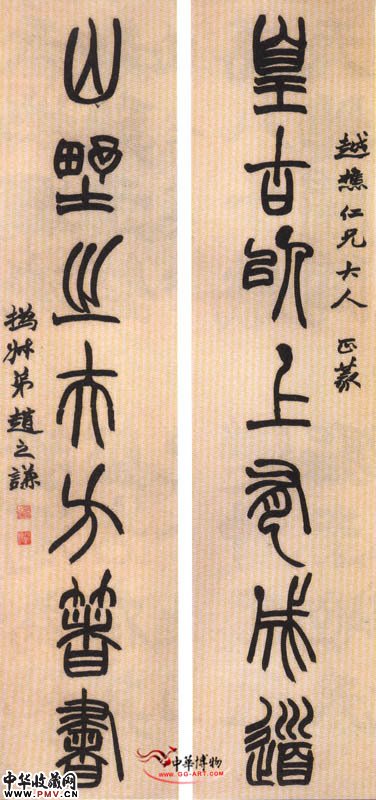 越樵仁兄大人 正篆
皇古所上成道
山野之夫方箸書
撝叔弟趙之謙
中華博物
WWW.GG-ART.COM
中华收藏网
WWW.PMV.CN